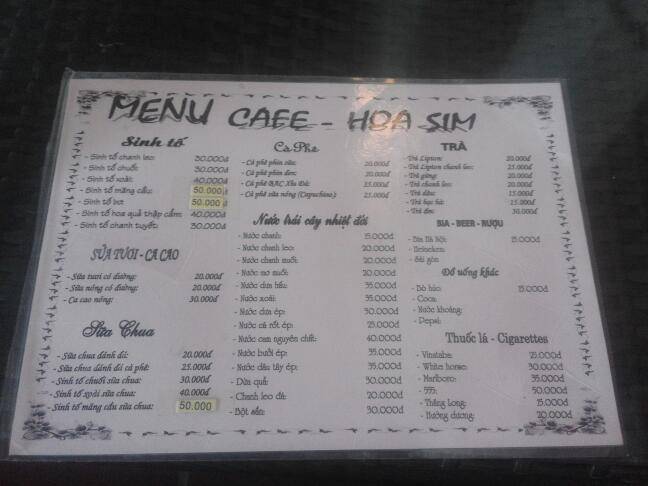 MENU CAFE - HOA SIM
Sinh tố
- Sinh tố chanh leo: 30.000đ
- Sinh tố chuối: 30.000đ
- Sinh tố xoài: 40.000đ
- Sinh tố mãng cầu: 50.000
- Sinh tố bơ: 50.000
- Sinh tố hoa quả thập cẩm: 40.000đ
- Sinh tố chanh tuyết: 30.000đ
SỮA TƯƠI - CA CAO
- Sữa tươi có đường: 20.000đ
- Sữa nóng có đường: 20.000đ
- Ca cao nóng: 30.000đ
Sữa Chua
- Sữa chua đánh đá: 20.000đ
- Sữa chua đánh đá cà phê: 25.000đ
- Sinh tố chuối sữa chua: 30.000đ
- Sinh tố xoài sữa chua: 40.000đ
- Sinh tố mãng cầu sữa chua: 50.000
Cà Phê
- Cà phê phin sữa: 20.000đ
- Cà phê phin đen: 20.000đ
- Cà phê BẠC Xỉu Đá: 25.000đ
- Cà phê sữa nóng (Capuchino): 25.000đ
Nước trái cây nhiệt đới
- Nước chanh: 15.000đ
- Nước chanh leo: 20.000đ
- Nước chanh muối: 20.000đ
- Nước mơ muối: 20.000đ
- Nước dưa hấu: 35.000đ
- Nước xoài: 35.000đ
- Nước dứa ép: 30.000đ
- Nước cà rốt ép: 25.000đ
- Nước cam nguyên chất: 40.000đ
- Nước bưởi ép: 35.000đ
- Nước dâu tây ép: 35.000đ
- Dừa quả: 30.000đ
- Chanh leo đá: 20.000đ
- Bột sắn: 30.000đ
TRÀ
- Trà Lipton: 20.000đ
- Trà Lipton chanh leo: 25.000đ
- Trà gừng: 20.000đ
- Trà chanh leo: 20.000đ
- Trà dâu: 15.000đ
- Trà bạc hà: 15.000đ
- Trà đen: 30.000đ
BIA - BEER - RƯỢU
- Bia Hà Nội: 15.000đ
- Heineken:
- Sài gòn
Đồ uống khác
- Bò húc: 15.000đ
- Coca:
- Nước khoáng:
- Pepsi:
Thuốc lá - Cigarettes
- Vinataba: 25.000đ
- White horse: 30.000đ
- Marlboro: 35.000đ
- 555: 50.000đ
- Thăng Long: 15.000đ
- Hướng dương: 20.000đ